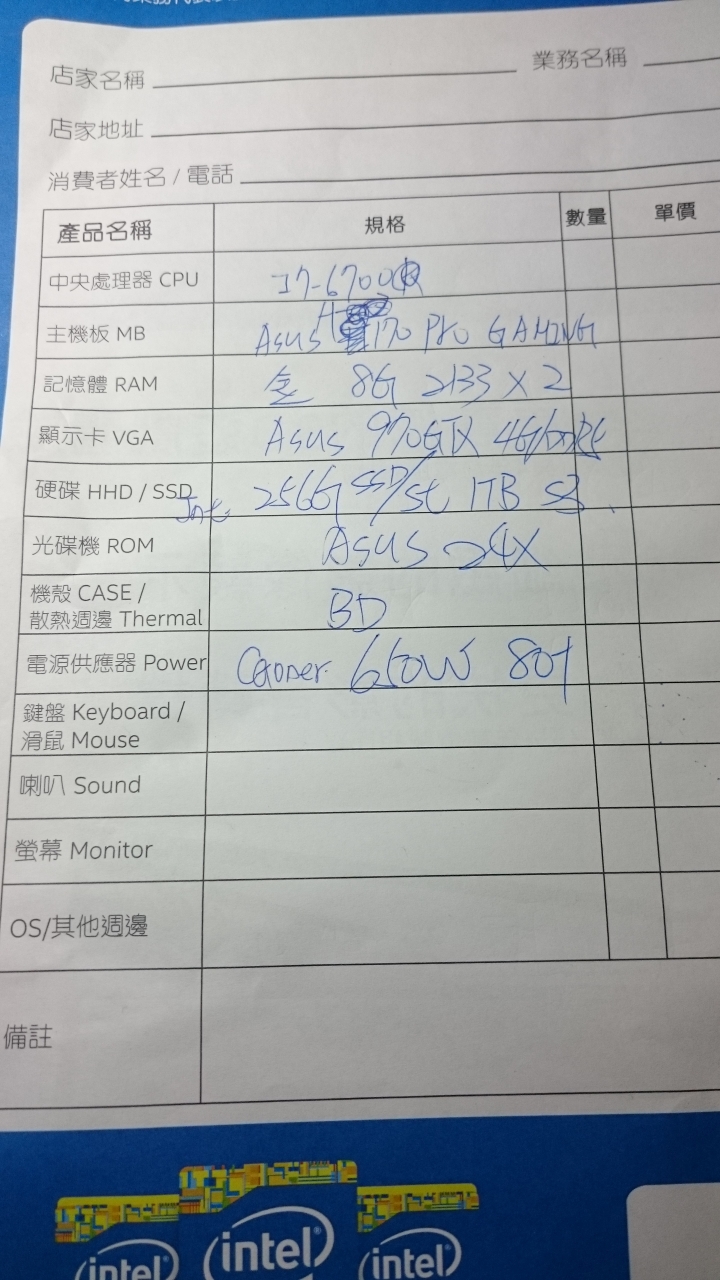 店家名稱 業務名稱
店家地址
消費者姓名 / 電話
產品名稱 規格 數量 單價
中央處理器 CPU I7-6700
主機板 MB Asus 170 Pro GAMING
記憶體 RAM 金 8G 2133 X 2
顯示卡 VGA Asus 970GTX 4G
硬碟 HHD / SSD 256G SSD/St 1TB S3
光碟機 ROM Asus 24X
機殼 CASE /
散熱週邊 Thermal BD
電源供應器 Power 650W 80+
鍵盤 Keyboard /
滑鼠 Mouse
喇叭 Sound
螢幕 Monitor
OS/其他週邊
備註
intel intel intel